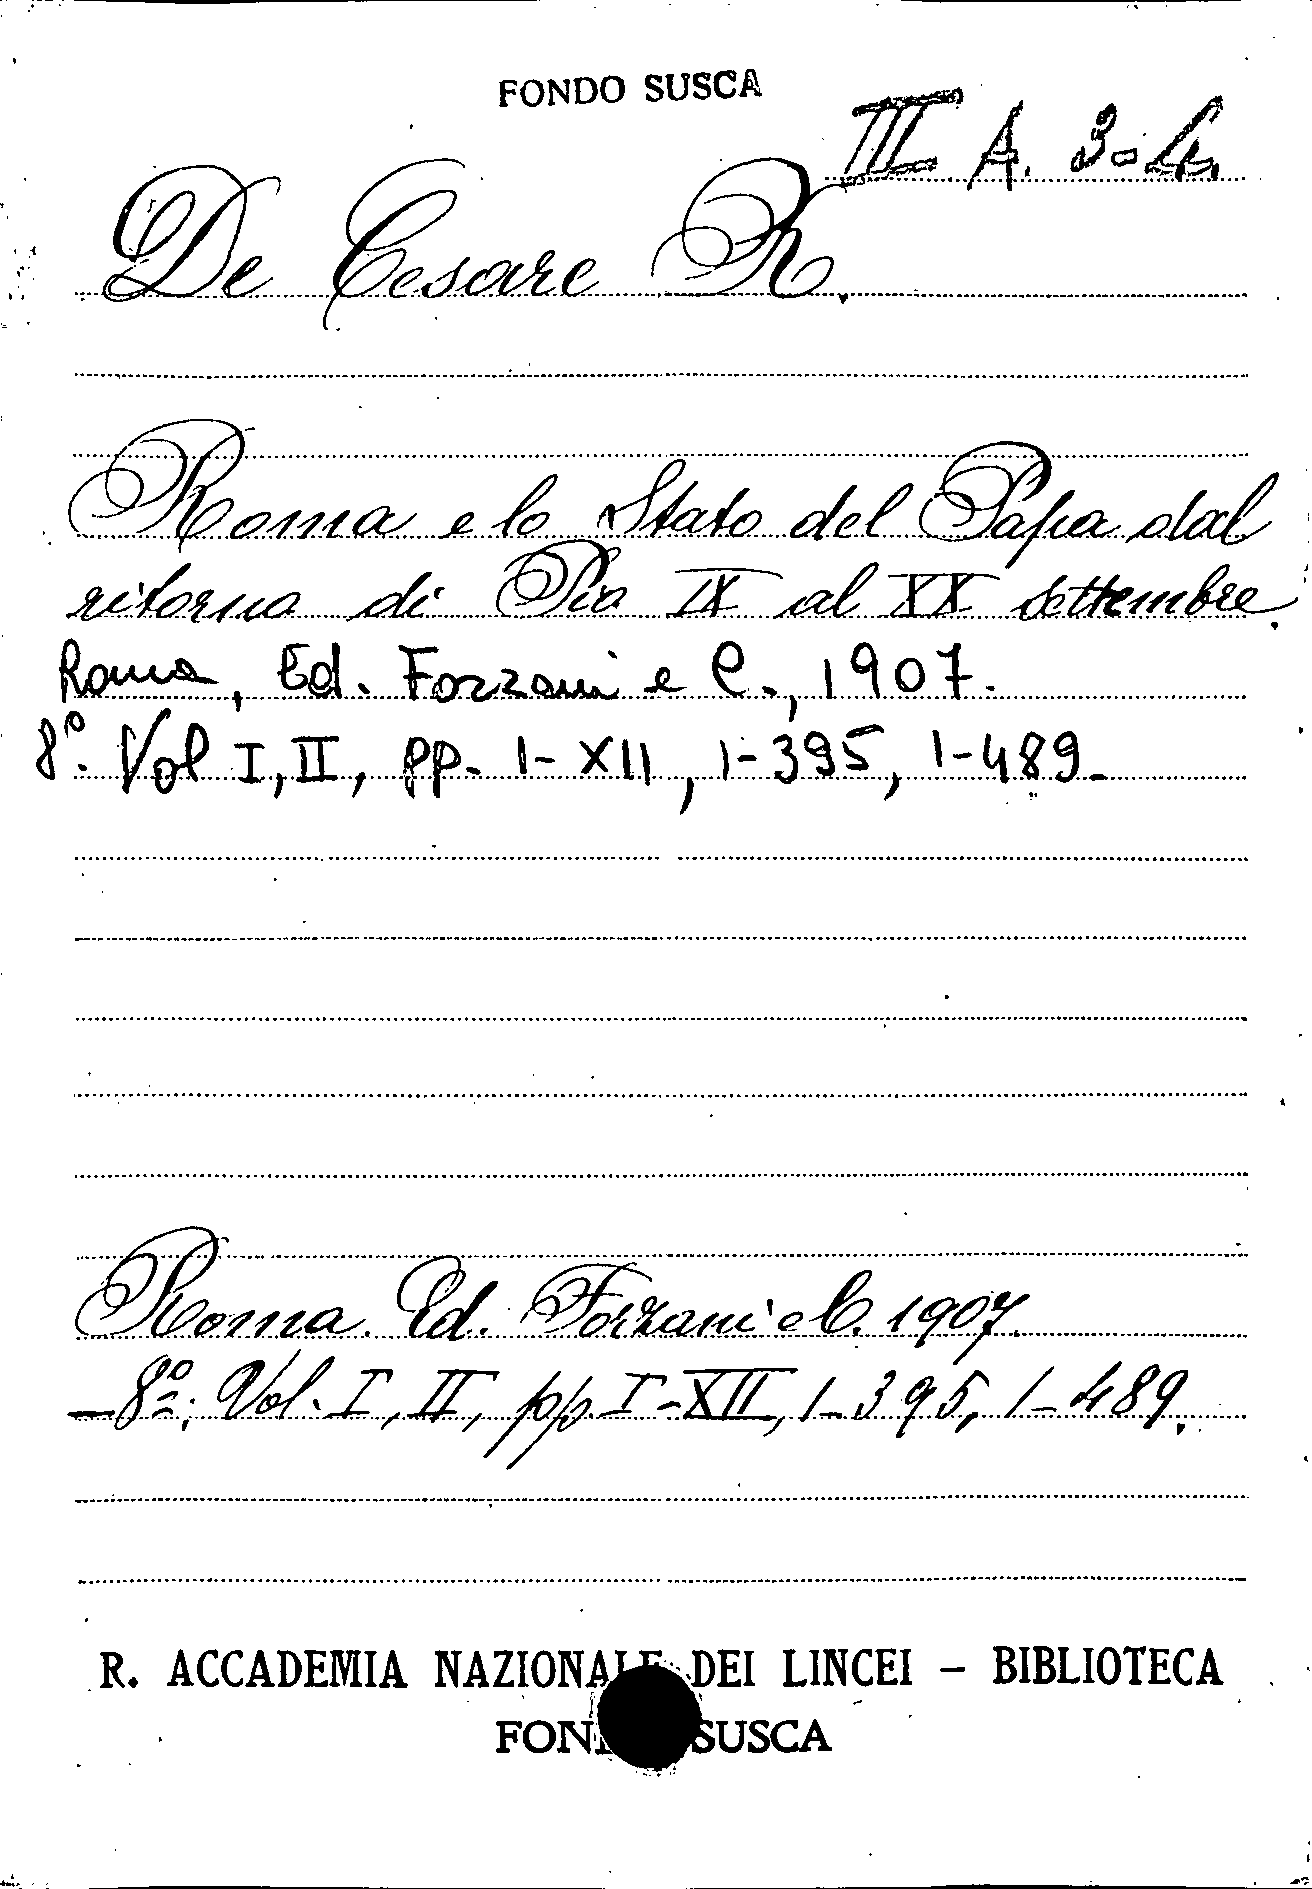 FONDO SUSCA
III A. 3-4.
De Cesare R.
Roma e lo Stato del Papa dal
ritorno di Pio IX al XX settembre.
Roma, Ed. Forzani e C., 1907.
8º. Vol I, II, pp. 1-XII, 1-395, 1-489.
Roma. Ed. Forzani e C. 1907.
-8º; Vol. I, II, pp. I-XII, 1-395, 1-489.
R. ACCADEMIA NAZIONALE DEI LINCEI - BIBLIOTECA
FONDO SUSCA